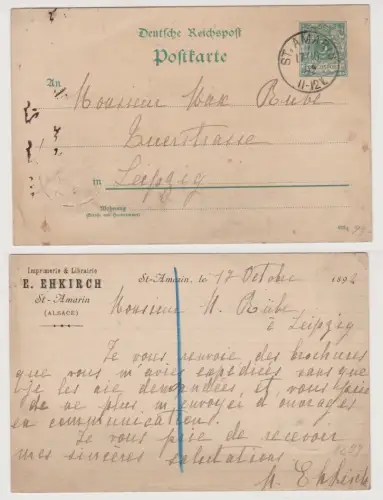 Deutsche Reichspost
Postkarte
ST. AMARIN
11-12 V
An Monsieur Max Rübe
in Leipzig
Wohnung
(Straße und Hausnummer)
Imprimerie & Librairie
E. EHKIRCH
St-Amarin
(ALSACE)
St-Amarin, le 17 Octobre 1892
Monsieur M. Rübe,
à Leipzig
Je vous renvoie des brochures
que vous m'avez expédiées sans que
je les aie demandées, et vous prie
de ne plus m'envoyer d'ouvrages
en communication.
Je vous prie de recevoir
mes sincères salutations
Ehkirch